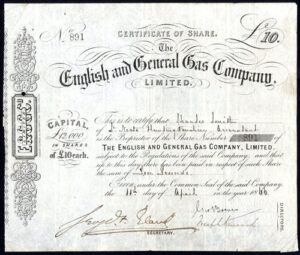 CERTIFICATE OF SHARE.
No. 891
£10.
The
English and General Gas Company,
LIMITED.
CAPITAL
IN SHARES
OF £10 each.
This is to certify that Charles Smith
of
is the Proprietor of the Share Number 891 of
THE ENGLISH AND GENERAL GAS COMPANY, LIMITED,
subject to the Regulations of the said Company; and that
up to this day there has been paid in respect of such Share
the sum of Ten Pounds.
GIVEN under the Common Seal of the said Company
the 11th day of April in the year 18
SECRETARY.
DIRECTORS.